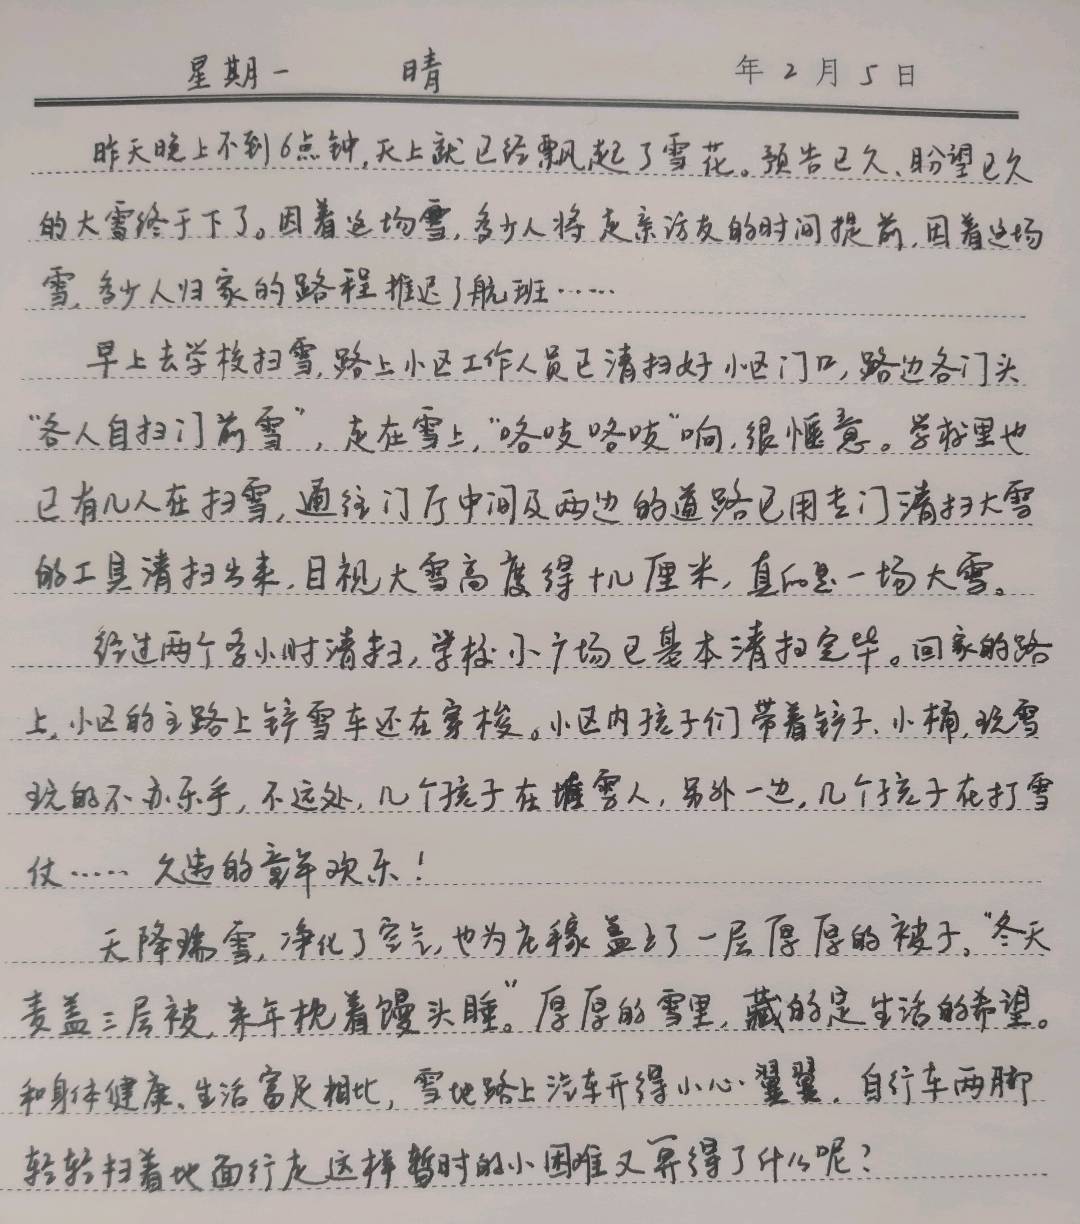 星期一 晴 年2月5日
昨天晚上不到6点钟,天上就已经飘起了雪花。预告已久、盼望已久
的大雪终于下了。因着这场雪,多少人将走亲访友的时间提前,因着这场
雪,多少人归家的路程推迟了航班……
早上去学校扫雪,路上小区工作人员已清扫好小区门口,路边各门头
“各人自扫门前雪”,走在雪上,“咯吱咯吱”响,很惬意。学校里也
已有几人在扫雪,通往门厅中间及两边的道路已用专门清扫大雪
的工具清扫出来,目视大雪高度得十几厘米,真的是一场大雪。
经过两个多小时清扫,学校小广场已基本清扫完毕。回家的路
上,小区的主路上铲雪车还在穿梭。小区内孩子们带着铲子、小桶,玩雪
玩的不亦乐乎,不远处,几个孩子在堆雪人,另外一边,几个孩子在打雪
仗…… 久违的童年欢乐!
天降瑞雪,净化了空气,也为庄稼盖上了一层厚厚的被子。“冬天
麦盖三层被,来年枕着馒头睡。”厚厚的雪里,藏的是生活的希望。
和身体健康、生活富足相比,雪地路上汽车开得小心翼翼,自行车两脚
轻轻扫着地面行走这样暂时的小困难又算得了什么呢?